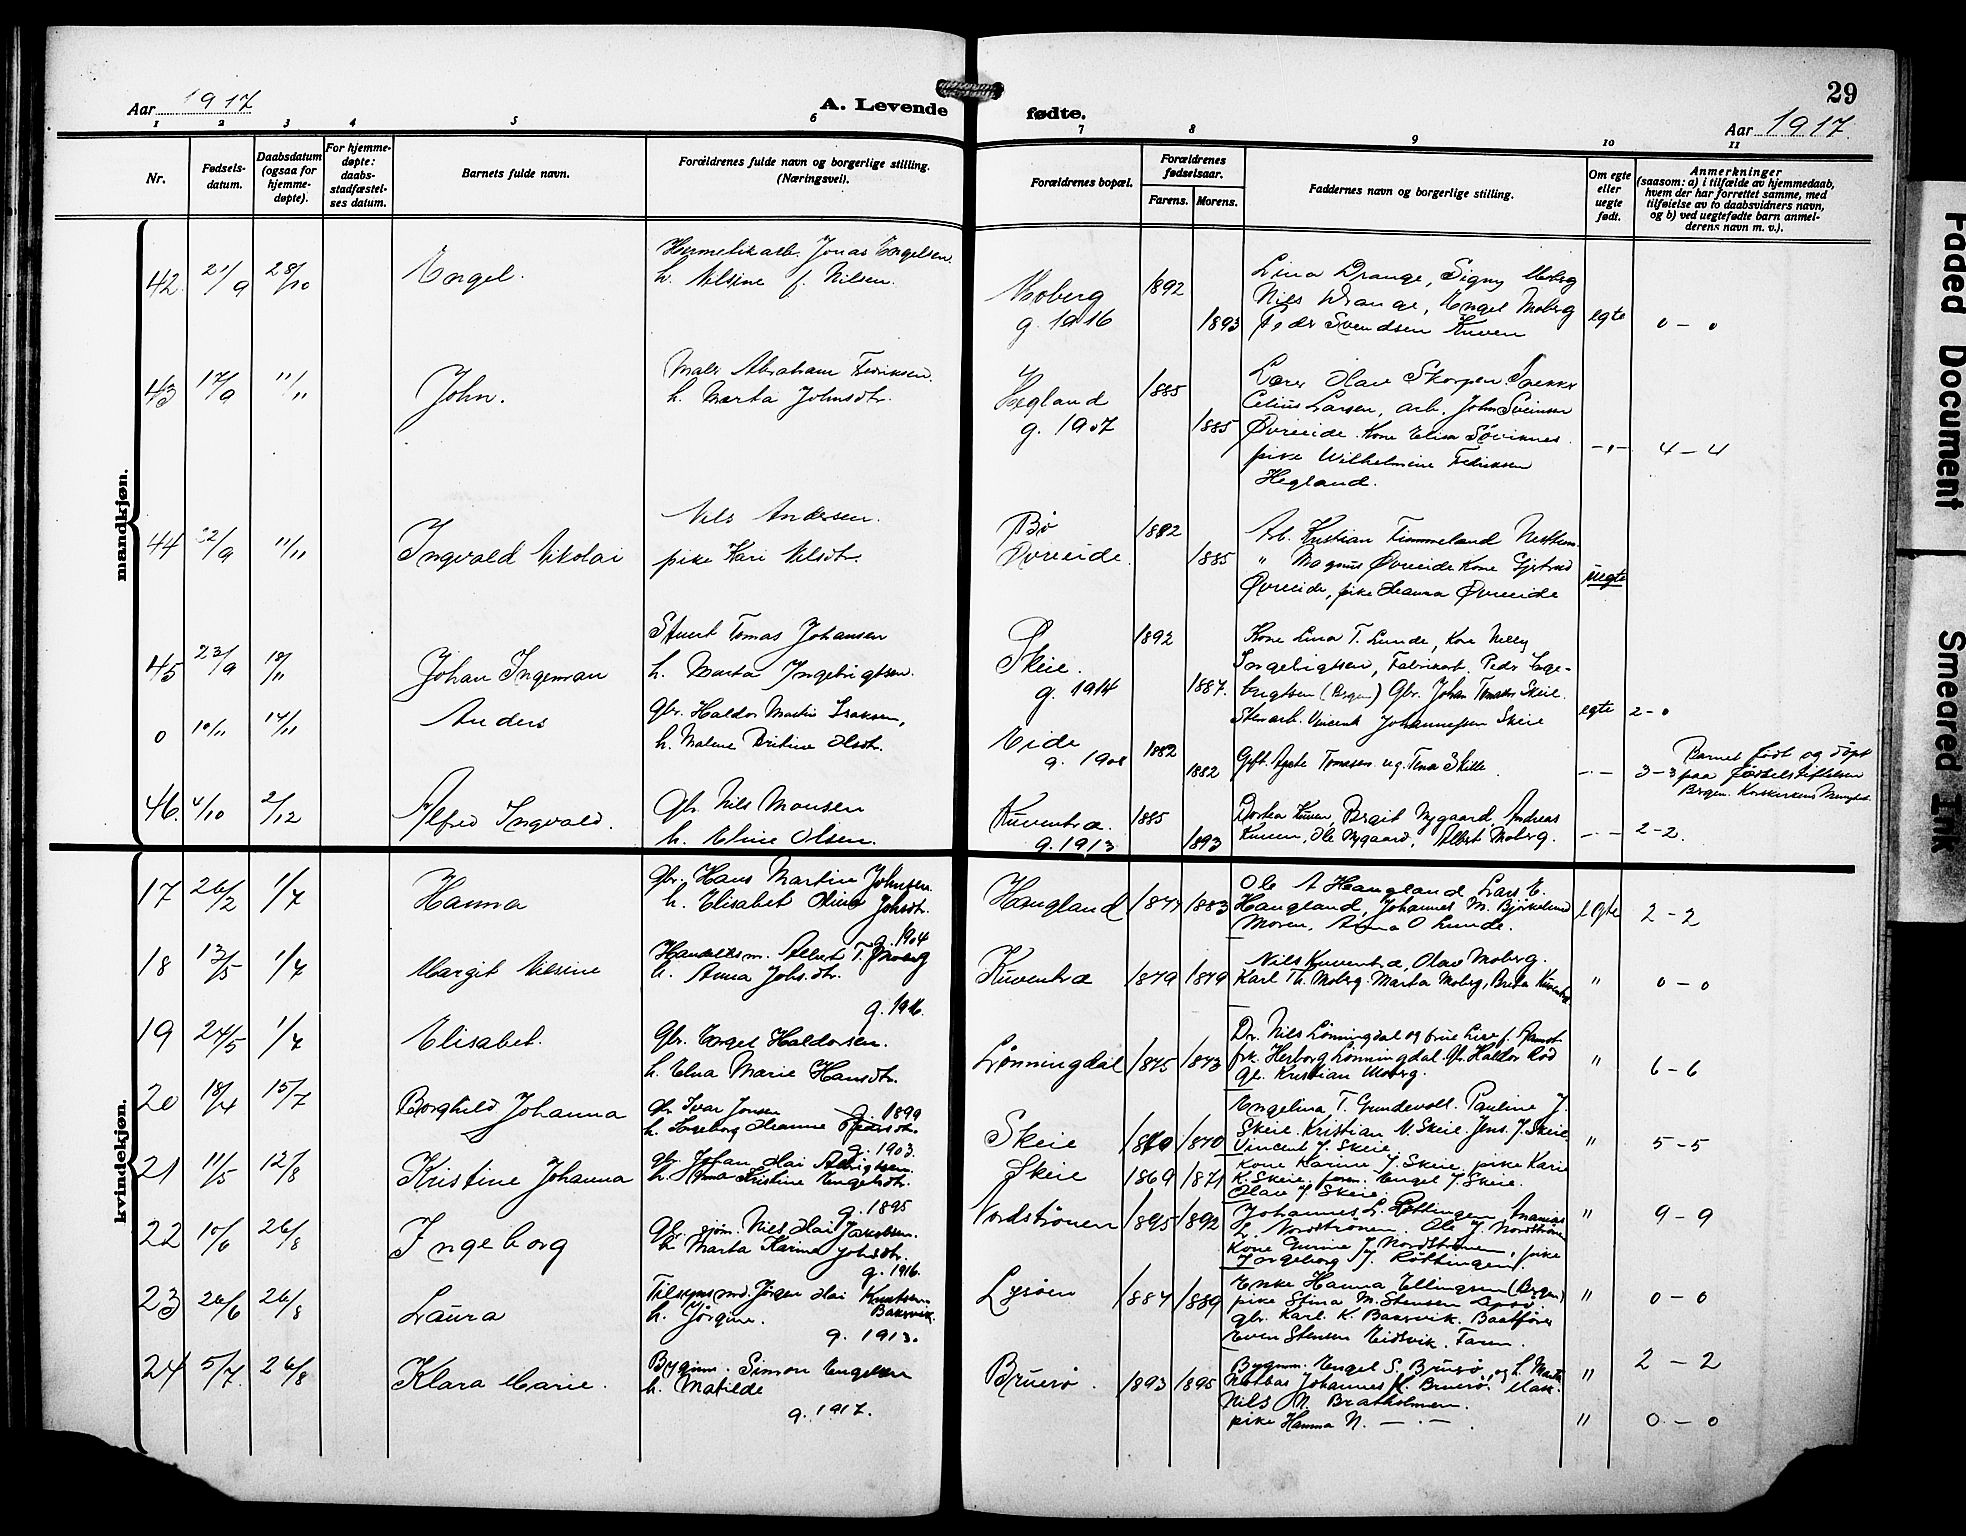 Aar 1917
A. Levende
fødte.
29
Aar 1917.
1 2 3 4 5 6 7 8 9 10 11
Nr.
Fødsels-
datum.
Daabsdatum
(ogsaa for
hjemme-
døpte).
For hjemme-
døpte:
daabs-
stadfæstel-
ses datum.
Barnets fulde navn.
Forældrenes fulde navn og borgerlige stilling.
(Næringsvei).
Forældrenes bopæl.
Forældrenes
fødselsaar.
Farens. Morens.
Faddernes navn og borgerlige stilling.
Om egte
eller
uegte
født.
Anmerkninger
(saasom: a) i tilfælde av hjemmedaab,
hvem der har forrettet samme, med
tilføielse av to daabsvidners navn,
og b) ved uegtefødte barn anmel-
derens navn m. v.).
mandkjøn.
42. 21/9 28/10 Engel. Hermetikarb. Jonas Engelsen.
h. Nilsine f. Nilsen.
Moberg
g. 1916
1892
1893
Lina Drange, Signy Moberg
Nils Drange, Engel Moberg
Peder Svendsen Kuven
egte 0 - 0
43 17/9 "/" John. Maler Abraham Fedriksen.
h. Marta Johnsdtr.
Hegland
g. 1907
1885
1885
Lærer Olav Skorpen
Celius Larsen, arb. John Sveinsen
Øvreeide. Kone Elisa Søviknes.
pike Wilhelmine Fedriksen
Hegland.
-"- 4 - 4
44 22/9 11/11 Ingvald Nikolai Nils Andersen.
pike Kari Nilsdtr.
Bø
Øvreeide.
1882
1885
Arb. Kristian Timmeland
" Magnus Øvreeide Kone Gjertrud
Øvreeide, pike Hanna Øvreeide
uegte
45 23/9 18/11 Johan Ingeman Stuert Tomas Johansen
h. Marta Ingebrigtsen.
Skeie.
g. 1914
1892
1887.
Kone Lina T. Lunde, Kone Nelly
Ingebrigtsen, Fabrikarb. Peder Inge-
brigtsen (Bergen) Gbr. Johan Tomassen Skeie.
Stenarb. Vincent Johannessen Skeie
egte 2 - 0
0 10/11 14/11 Anders Gbr. Haldor Martin Isaksen,
h. Malene Olsdtr.
Eide
g. 1908
1882
1882
Gift Agate Tomasen ug. Tina Skille.
-"- 3 - 3
Barnet født og døpt
paa Fødselsstiftelsen
Bergen. Korskirkens Menighet.
46. 4/10 2/12 Alfred Ingvald. Gbr. Nils Monsen
h. Eline Olsen.
Kuventræ.
g. 1913
1885
1893
Dortea Kuven, Bergit Nygaard, Andreas
Kuven, Ole Nygaard, Albert Moberg.
-"- 2 - 2.
kvindekjøn.
17 26/2 1/7 Hanna Gbr. Hans Martin Johnsen
h. Elisabet Olina Johsdtr.
g. 1904
Haugland 1877 1883
Ole A Haugland, Lars E.
Haugland, Johannes M. Bjørkelund
Moren, Anna O Lunde.
Egte 2 - 2
18 13/5 1/7 Margit Nilsine Handelsm. Albert T. Moberg
h. Anna Johs.dtr.
g. 1916.
Kuventræ 1879 1879
Nils Kuventræ, Olav Moberg.
Karl Th. Moberg. Marta Moberg, Brita Kuventræ
" 0 - 0
19 24/5 1/7 Elisabet. Gbr. Engel Haldorsen.
h. Elna Marie Hansdtr.
g. 1899
Lønningdal 1875 1873
Dr. Nils Lønningdal og frue Lise f.
frk. Herborg Lønningdal. Gbr. Haldor Rød
Gbr. Kristian Moberg.
" 6 - 6
20 18/4 15/7 Borghild Johanna Gbr. Ivar Jonsen
h. Ingeborg Oleanne Pedersdtr.
g. 1903.
Skeie 1870 1870
Engelina T. Gundevoll. Pauline J.
Skeie. Kristian N. Skeie. Jens. J. Skeie
Vincent J. Skeie.
" 5 - 5
21 11/5 12/8 Kristine Johanna Gbr. Johan Olai
h. Anna Kristine Engelsdtr.
g. 1895
Skeie 1869 1871
Kone Karine J. Skeie. pike Kari
K. Skeie. form. Engel J. Skeie.
Olav J Skeie.
" 9 - 9
22 10/6 26/8 Ingeborg Gbr. sjøm. Nils Olai Jakobsen.
h. Marta Karina Johsdtr.
g. 1916.
Nordstrønen 1895 1892
Johannes L. Røttingen, Ananias
L. Nordstrønen. Ole J. Nordstrønen
Kone Gurine J. Nordstrønen, pike
Ingeborg J. Røttingen.
" 0 - 0
23 26/6 26/8 Laura Tilsynsmd. Jørgen Olai Knutsen
Baksvik.
h. Jørgine.
g. 1913.
Lysøen 1887 1889
Enke Hanna Ellingsen (Bergen)
pike Stina M. Stensen Lepsø.
gbr. Karl K. Baksvik. Baatfører
Even Stensen Eidsvik. Faren.
" 2 - 2
24 5/7. 26/8 Klara Marie. Bygnm. Simon Engelsen
h. Matilde
g. 1917.
Bruerø. 1893 1895
Bygnm. Engel S. Bruerø, og h. Marta
Notbas Johannes K. Bruerø. Mask.
Nils N. Bratholmen.
pike Hanna N. - " -.
" 0 - 0
Faded Document
Smeared Ink